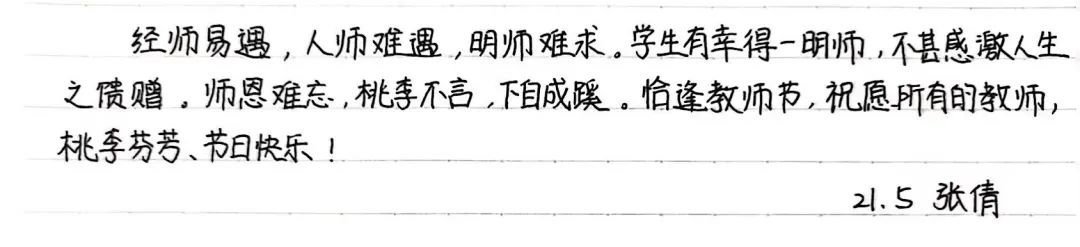 经师易遇，人师难遇，明师难求。学生有幸得一明师，不甚感激人生
之馈赠。师恩难忘，桃李不言，下自成蹊。恰逢教师节，祝愿所有的教师，
桃李芬芳、节日快乐！
21.5 张倩